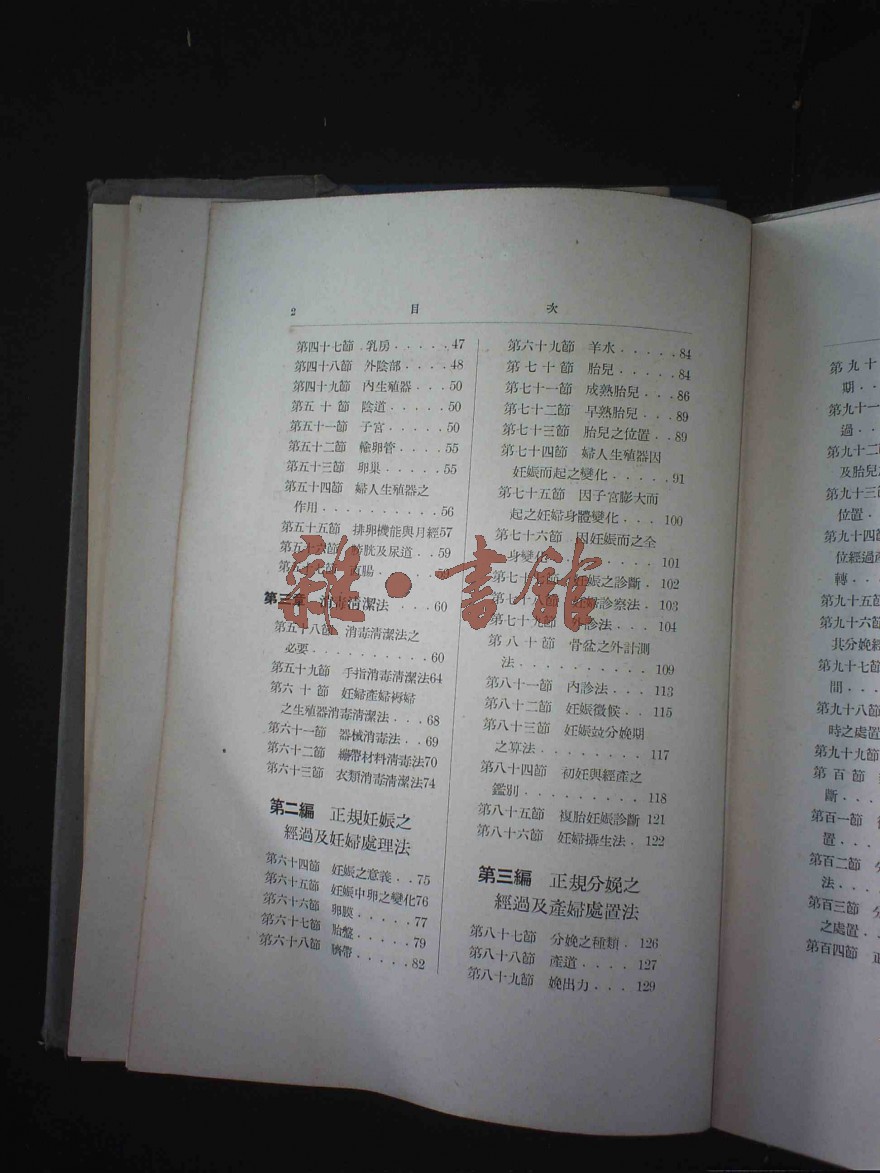 2 目次
第四十七節 乳房 . . . . . 47
第四十八節 外陰部 . . . . 48
第四十九節 內生殖器 . . . 50
第五十節 陰道 . . . . . 50
第五十一節 子宮 . . . . . 50
第五十二節 輸卵管 . . . . 55
第五十三節 卵巢 . . . . . 55
第五十四節 婦人生殖器之
作用 . . . . . . . . . . 56
第五十五節 排卵機能與月經57
第五十六節 膀胱及尿道 . . 59
第五十七節 直腸
第三章 消毒清潔法 . . . 60
第五十八節 消毒清潔法之
必要 . . . . . . . . . . 60
第五十九節 手指消毒清潔法64
第六十節 妊婦產婦褥婦
之生殖器消毒清潔法 . . . 68
第六十一節 器械消毒法 . . 69
第六十二節 繃帶材料清毒法70
第六十三節 衣類消毒清潔法74
第二編 正規妊娠之
經過及妊婦處理法
第六十四節 妊娠之意義 . . 75
第六十五節 妊娠中卵之變化76
第六十六節 卵膜 . . . . . 77
第六十七節 胎盤 . . . . . 79
第六十八節 臍帶 . . . . . 82
第六十九節 羊水 . . . . . 84
第七十節 胎兒 . . . . . 84
第七十一節 成熟胎兒 . . . 86
第七十二節 早熟胎兒 . . . 89
第七十三節 胎兒之位置 . . 89
第七十四節 婦人生殖器因
妊娠而起之變化 . . . . . 91
第七十五節 因子宮膨大而
起之妊婦身體變化 . . . 100
第七十六節 因妊娠而之全
身變化 . . . . . . . . 101
第七十七節 妊娠之診斷 . 102
第七十八節 妊婦診察法 . 103
第七十九節 外診法 . . . 104
第八十節 骨盆之外計測
法 . . . . . . . . . . 109
第八十一節 內診法 . . . 113
第八十二節 妊娠徵候 . . 115
第八十三節 妊娠並分娩期
之算法 . . . . . . . . 117
第八十四節 初妊與經產之
鑑別 . . . . . . . . . 118
第八十五節 複胎妊娠診斷 121
第八十六節 妊婦攝生法 . 122
第三編 正規分娩之
經過及產婦處置法
第八十七節 分娩之種類 . 126
第八十八節 產道 . . . . 127
第八十九節 娩出力 . . . 129
雜·書館
第九十
期 . .
第九十一
過 . .
第九十二
及胎兒
第九十三
位置 .
第九十四節
位經過
轉 . . .
第九十五節
第九十六節
共分娩經
第九十七節
間 . . . .
第九十八節
時之處置
第九十九節
第百節
斷 . . . . .
第百一節
置 . . . .
第百二節
法 . . . .
第百三節
之處置 . .
第百四節